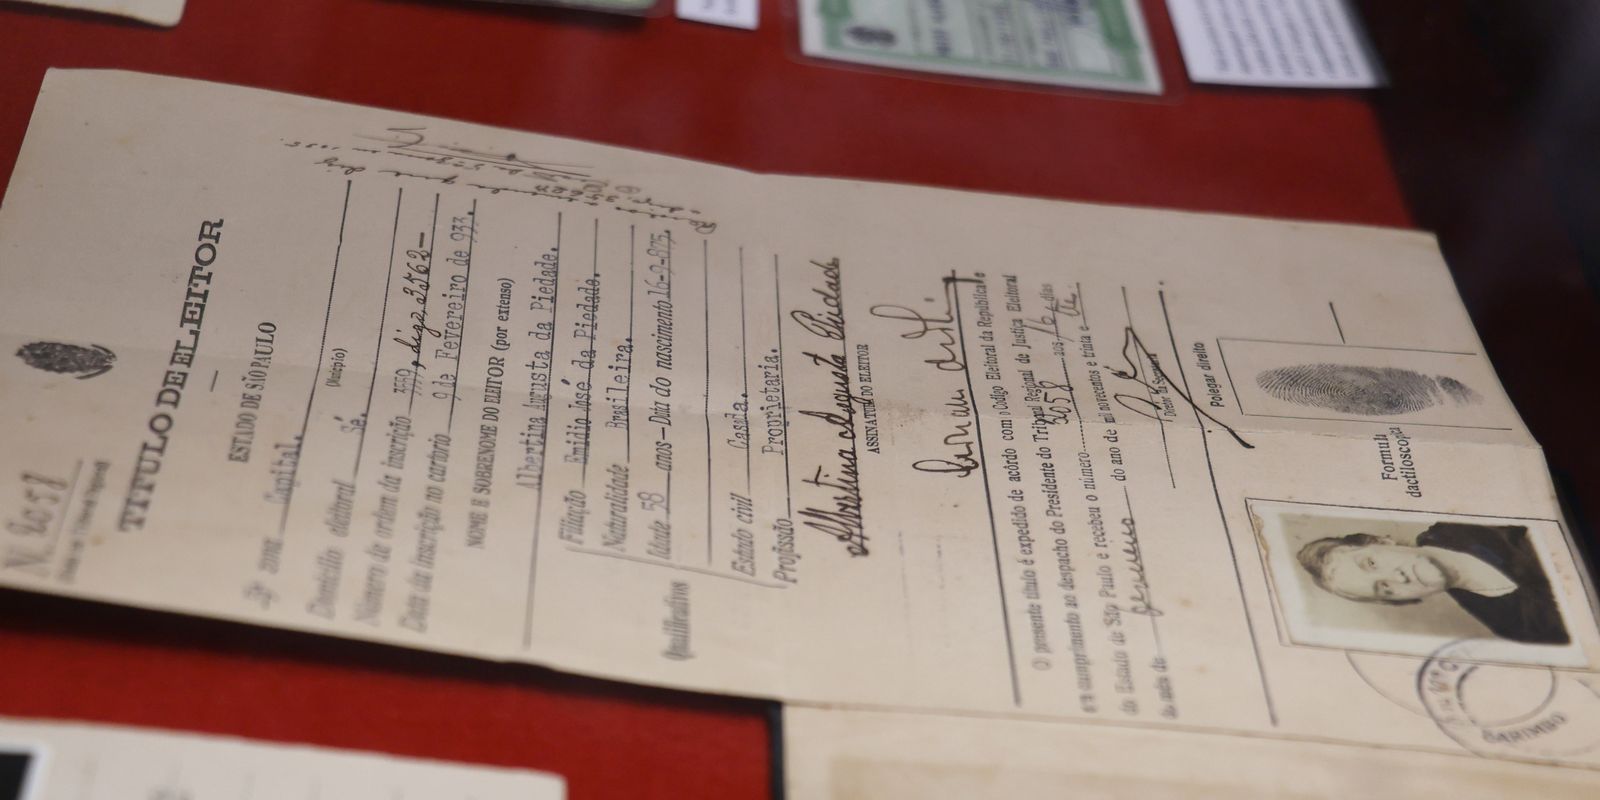 N. 2058
TITULO DE ELEITOR
ESTADO DE SÃO PAULO
zona Capital.
(Município)
Domicílio eleitoral Sé.
Número de ordem da inscrição 3559, digo, 3562—
Data da inscrição no cartório 9 de Fevereiro de 933.
NOME E SOBRENOME DO ELEITOR (por extenso)
Albertina Augusta da Piedade.
Qualificativos
Filiação Emidio José da Piedade.
Naturalidade Brasileira.
Idade 58 anos—Dia do nascimento 16-9-875.
Estado civil Casada.
Profissão Proprietaria.
Albertina Augusta Piedade
ASSINATURA DO ELEITOR
O presente título é expedido de acôrdo com o Código Eleitoral da República e
em cumprimento ao despacho do Presidente do Tribunal Regional de Justiça Eleitoral
do Estado de São Paulo e recebeu o número 3058 aos 16 dias
do mês de do ano de mil novecentos e trinta e
Diretor da Secretaria
Polegar direito
Formula
dactiloscopica
CARIMBO